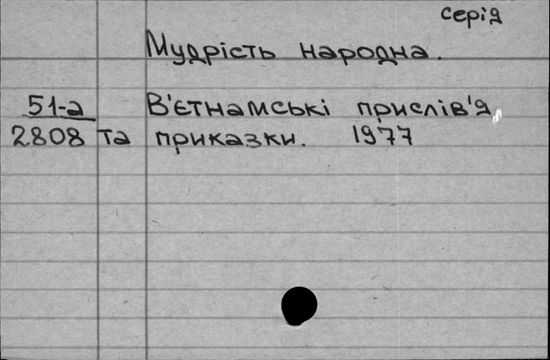 серія
Мудрість народна.
51-а В'єтнамські прислів'я
2808 та приказки. 1977